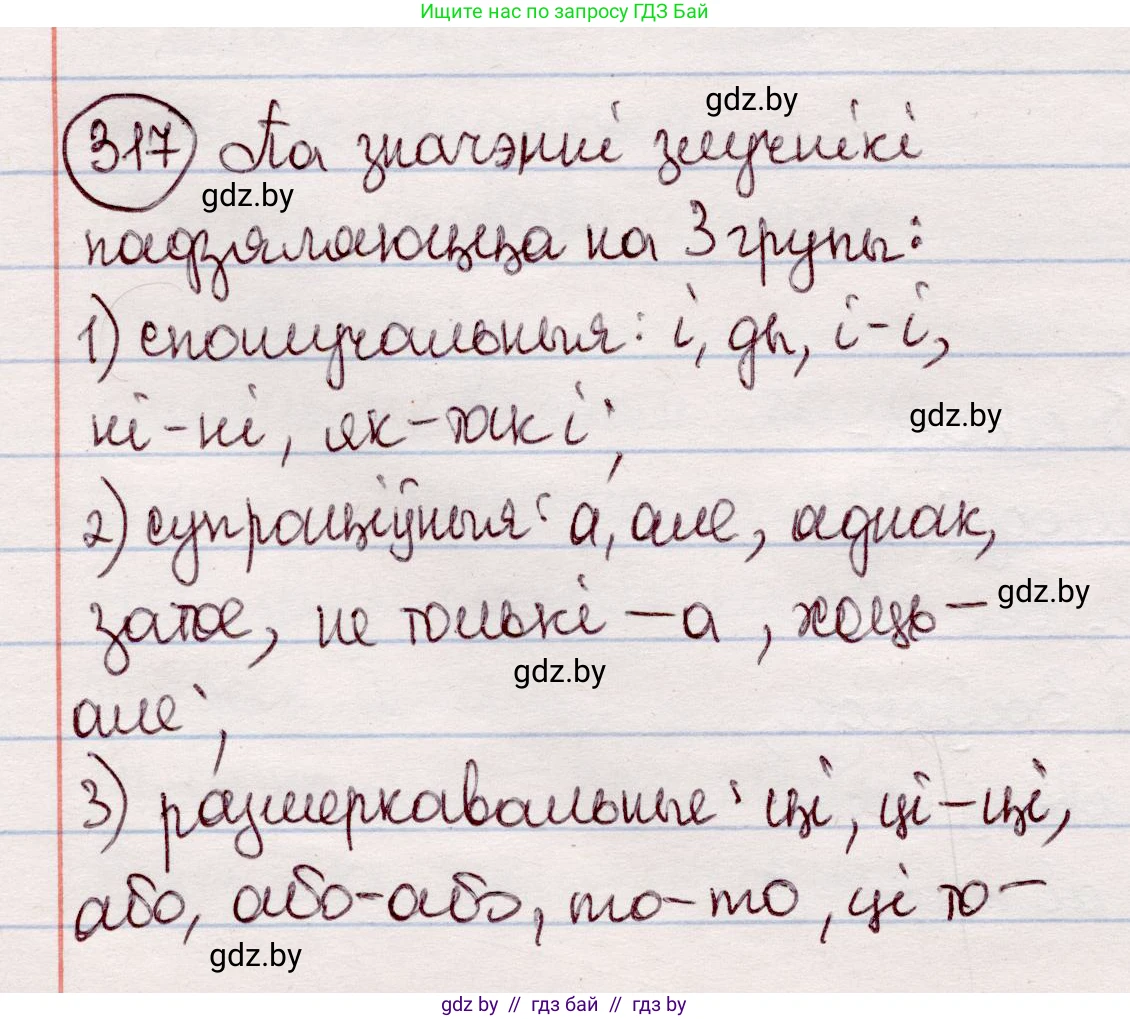 Ищите нас по запросу ГДЗ Бай
gdz.by
317 Па значэнні злучнікі
gdz.by
падзяляюцца на 3 групы:
1) спалучальныя: і, ды, і-і,
ні-ні, як-так і;
gdz.by
2) супраціўныя: а, але, аднак,
затое, не толькі – а, хоць –
gdz.by
gdz.by
але;
3) размеркавальныe: ці, ці-ці,
або, або-або, то-то, ці то –
gdz.by
gdz by // гдз бай // гдз by